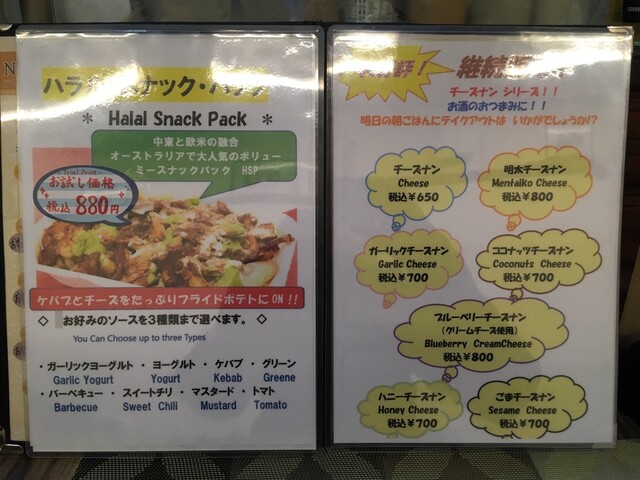 ハラ ナック・パック
* Halal Snack Pack *
中東と欧米の融合
オーストラリアで大人気のボリュー
ミースナックパック HSP
Trial Price
お試し価格
税込 880円
ケバブとチーズをたっぷりフライドポテトにON!!
◇ お好みのソースを3種類まで選べます。 ◇
You Can Choose up to three Types
・ガーリックヨーグルト ・ ヨーグルト ・ ケバブ ・ グリーン
Garlic Yogurt Yogurt Kebab Greene
・バーベキュー ・ スイートチリ ・ マスタード ・ トマト
Barbecue Sweet Chili Mustard Tomato
継続
チーズナン シリーズ!!
お酒のおつまみに!!
明日の朝ごはんにテイクアウトは いかがでしょうか!?
チーズナン
Cheese
税込¥650
明太チーズナン
Mentaiko Cheese
税込¥800
ガーリックチーズナン
Garlic Cheese
税込¥700
ココナッツチーズナン
Coconuts Cheese
税込¥700
ブルーベリーチーズナン
(クリームチーズ使用)
Blueberry CreamCheese
税込¥800
ハニーチーズナン
Honey Cheese
税込¥700
ごまチーズナン
Sesame Cheese
税込¥700